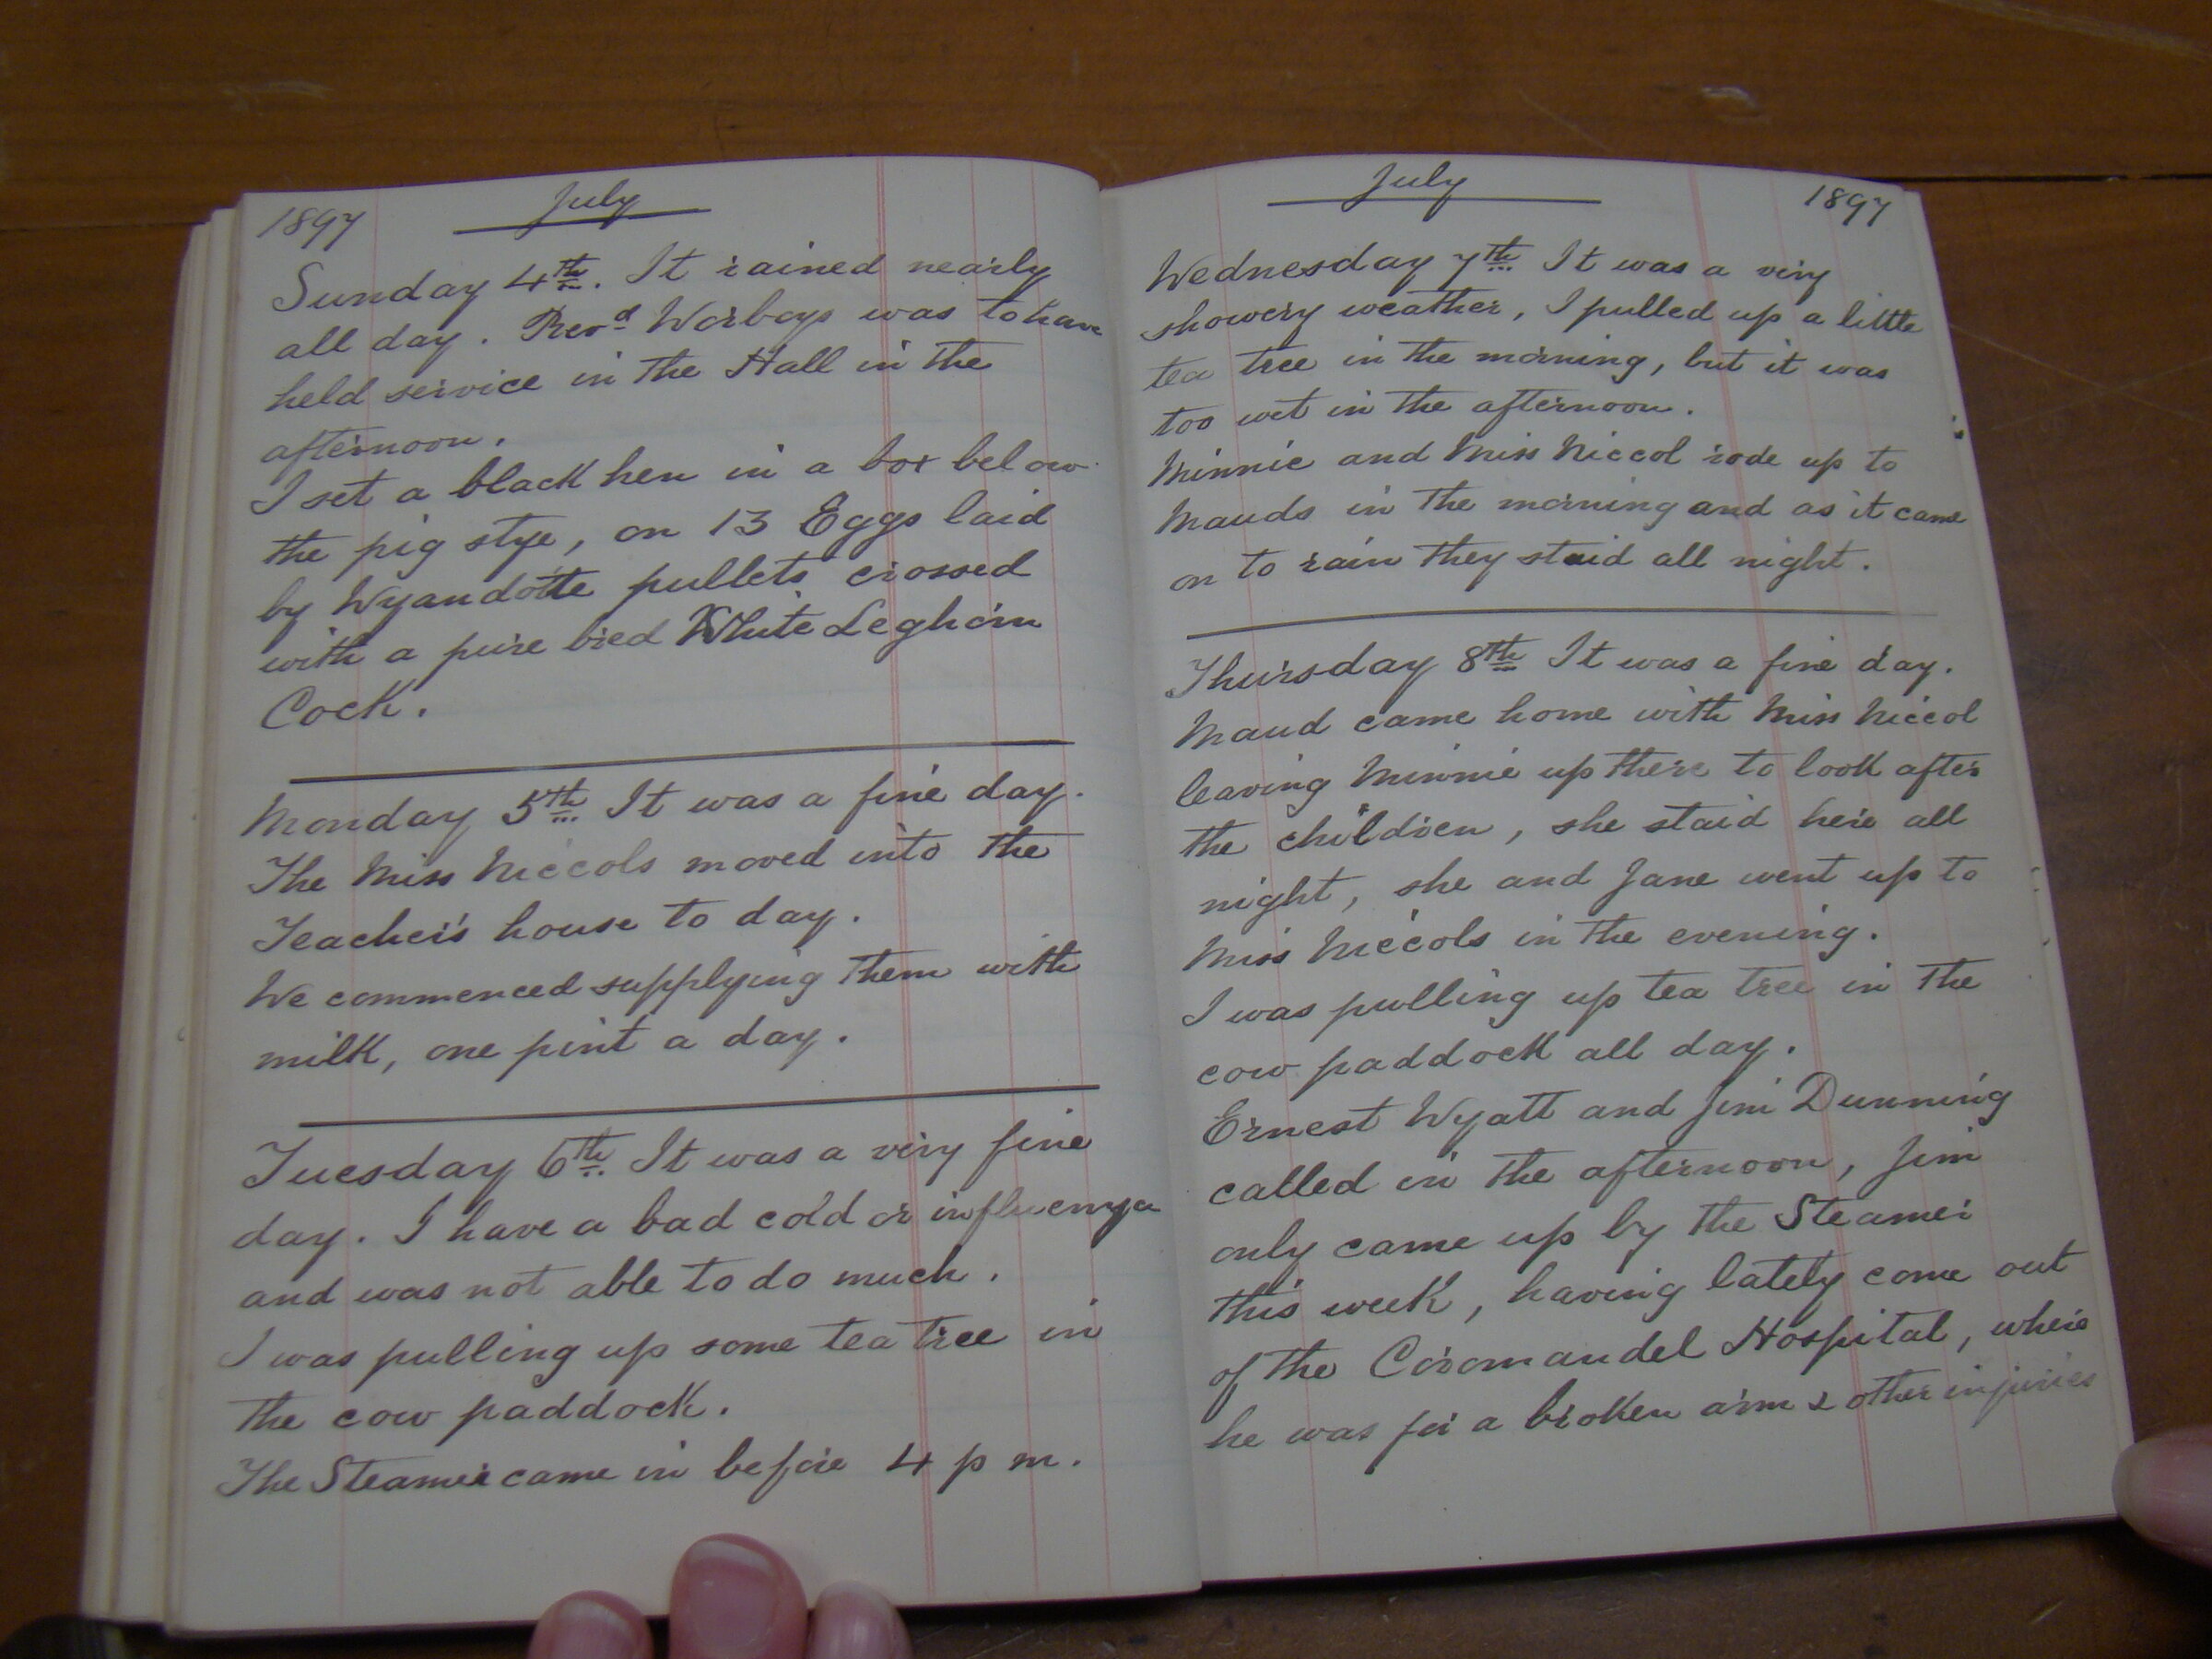 1897 July
Sunday 4th. It rained nearly
all day. Revd Worboys was to have
held service in the Hall in the
afternoon.
I set a black hen in a box below
the pig stye, on 13 Eggs laid
by Wyandotte pullets crossed
with a pure bred White Leghorn
Cock.
Monday 5th It was a fine day.
The Miss Niccols moved into the
Teacher's house to day.
We commenced supplying them with
milk, one pint a day.
Tuesday 6th It was a very fine
day. I have a bad cold or influenza
and was not able to do much.
I was pulling up some tea tree in
the cow paddock.
The Steamer came in before 4 p m.
July 1897
Wednesday 7th It was a very
showery weather, I pulled up a little
tea tree in the morning, but it was
too wet in the afternoon.
Minnie and Miss Niccol rode up to
Mauds in the morning and as it came
on to rain they staid all night.
Thursday 8th It was a fine day.
Maud came home with Miss Niccol
leaving Minnie up there to look after
the children, she staid here all
night, she and Jane went up to
Miss Niccols in the evening.
I was pulling up tea tree in the
cow paddock all day.
Ernest Wyatt and Jim Dunning
called in the afternoon, Jim
only came up by the Steamer
this week, having lately come out
of the Coromandel Hospital, where
he was for a broken arm & other injuries